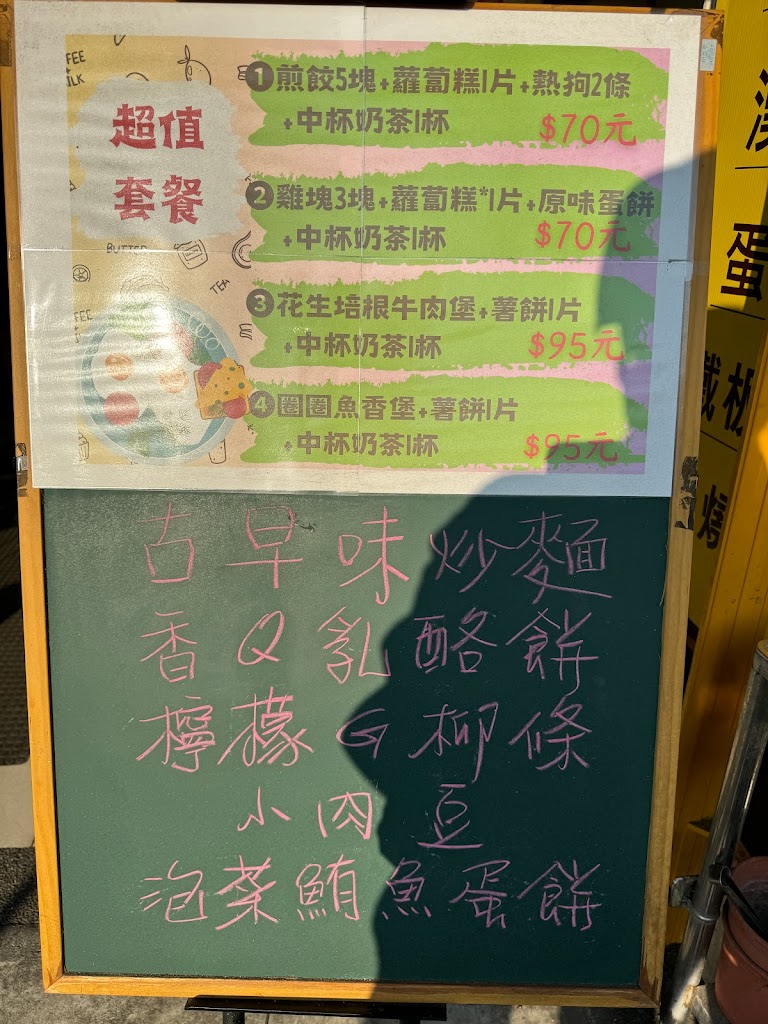 超值
套餐
❶煎餃5塊+蘿蔔糕1片+熱狗2條
+中杯奶茶1杯 $70元
❷雞塊3塊+蘿蔔糕*1片+原味蛋餅
+中杯奶茶1杯 $70元
❸花生培根牛肉堡+薯餅1片
+中杯奶茶1杯 $95元
❹圈圈魚香堡+薯餅1片
+中杯奶茶1杯 $95元
BUTTER
TEA
古早味炒麵
香Q乳酪餅
檸檬G柳條
小肉豆
泡菜鮪魚蛋餅
蛋
鐵板